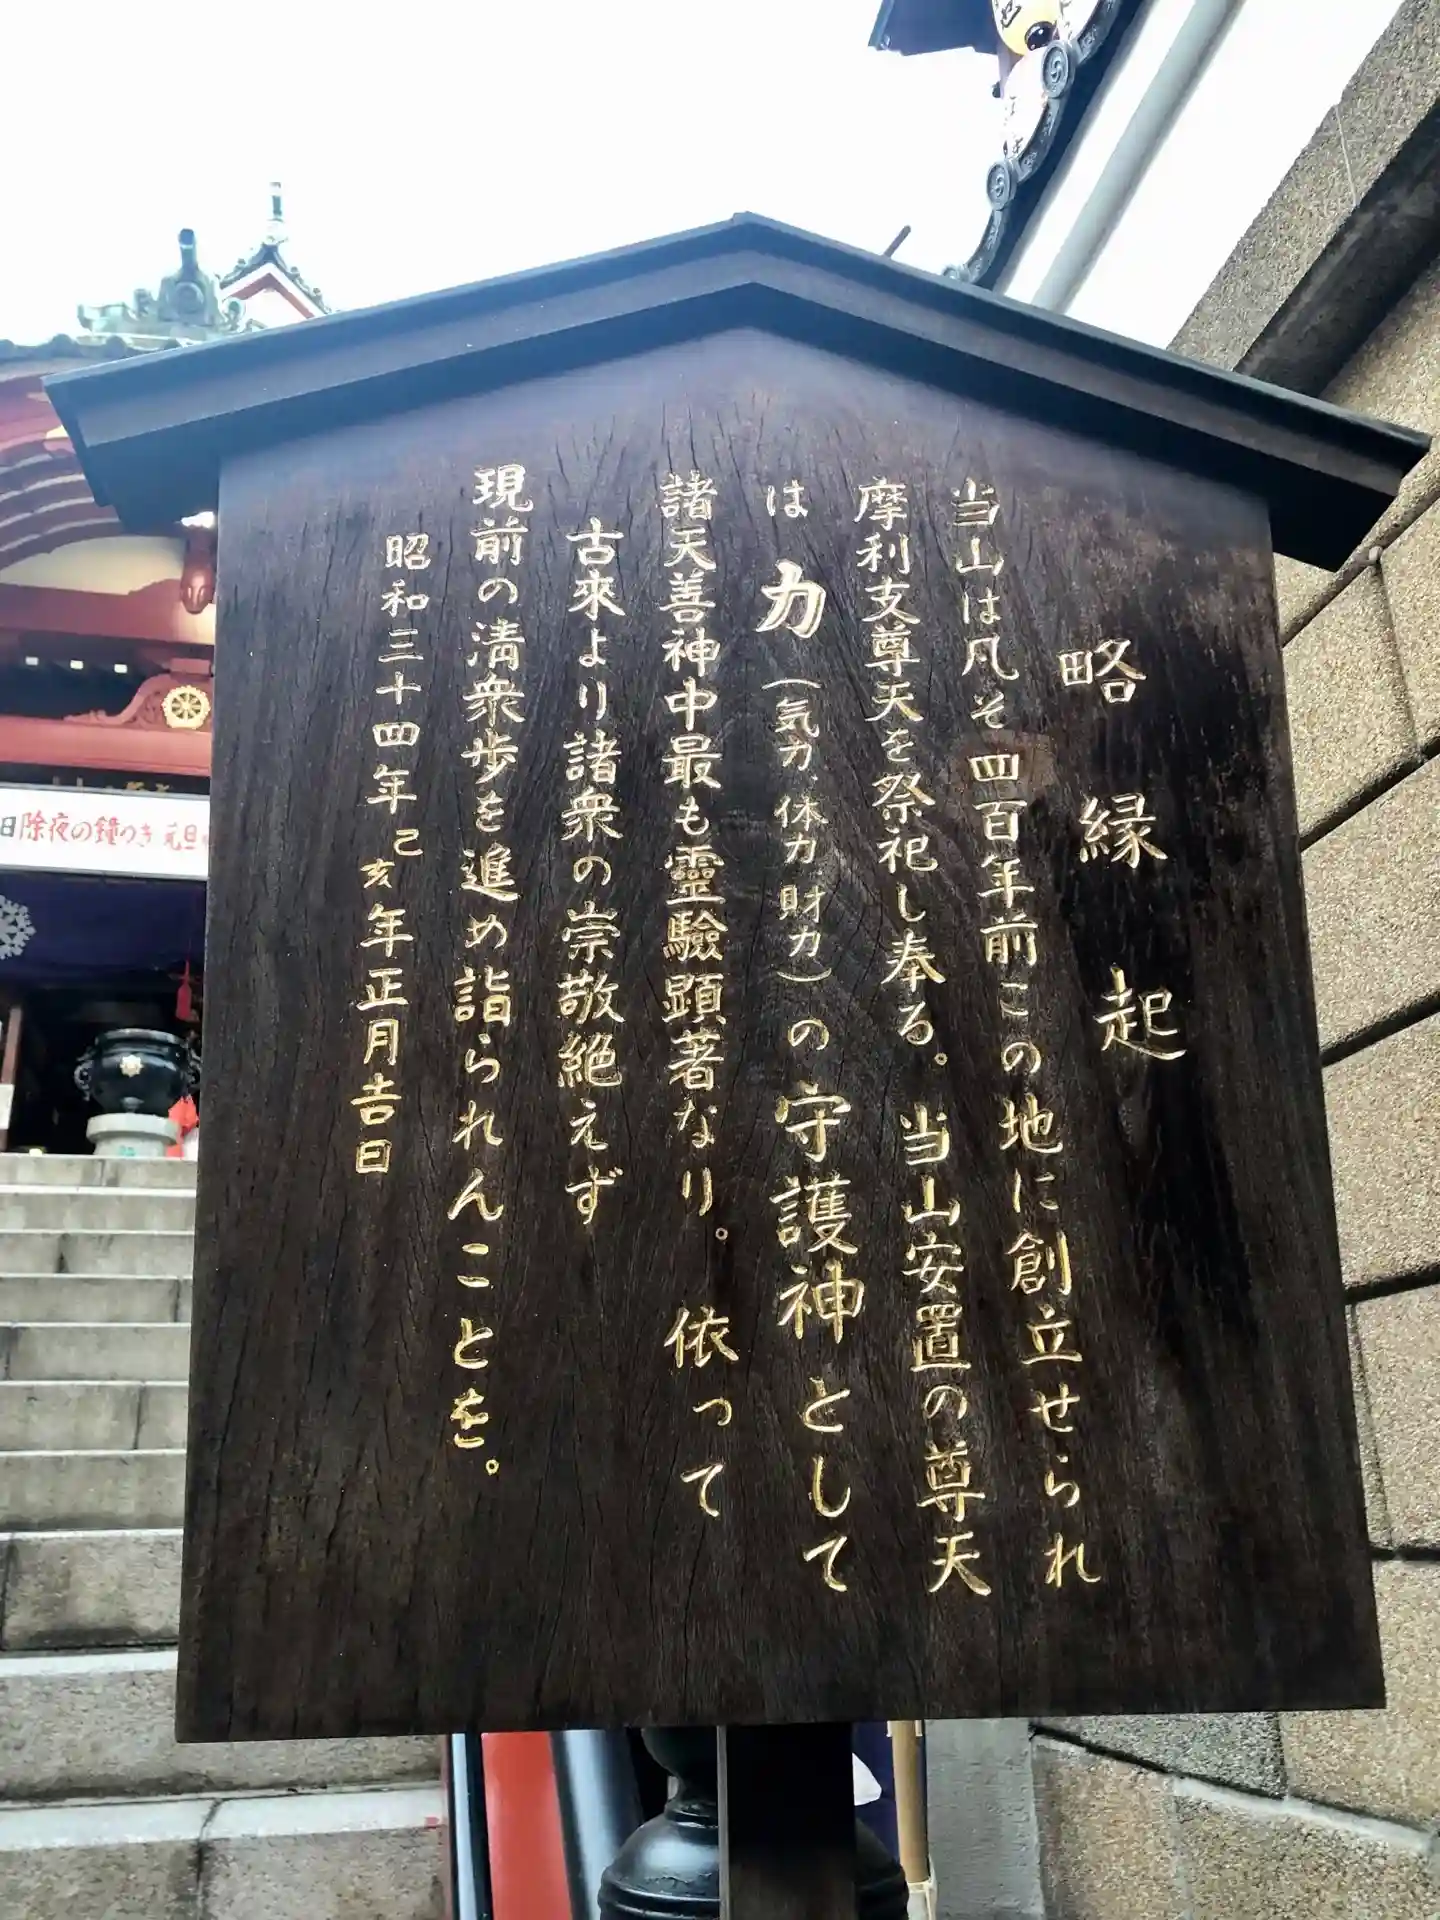 略縁起
当山は凡そ四百年前この地に創立せられ
摩利支尊天を祭祀し奉る。当山安置の尊天
は力(気力、体力、財力)の守護神として
諸天善神中最も靈驗顕著なり。依って
古來より諸衆の崇敬絶えず
現前の淸衆歩を進め詣られんことを。
昭和三十四年己亥年正月吉日
日除夜の鐘つき 元旦